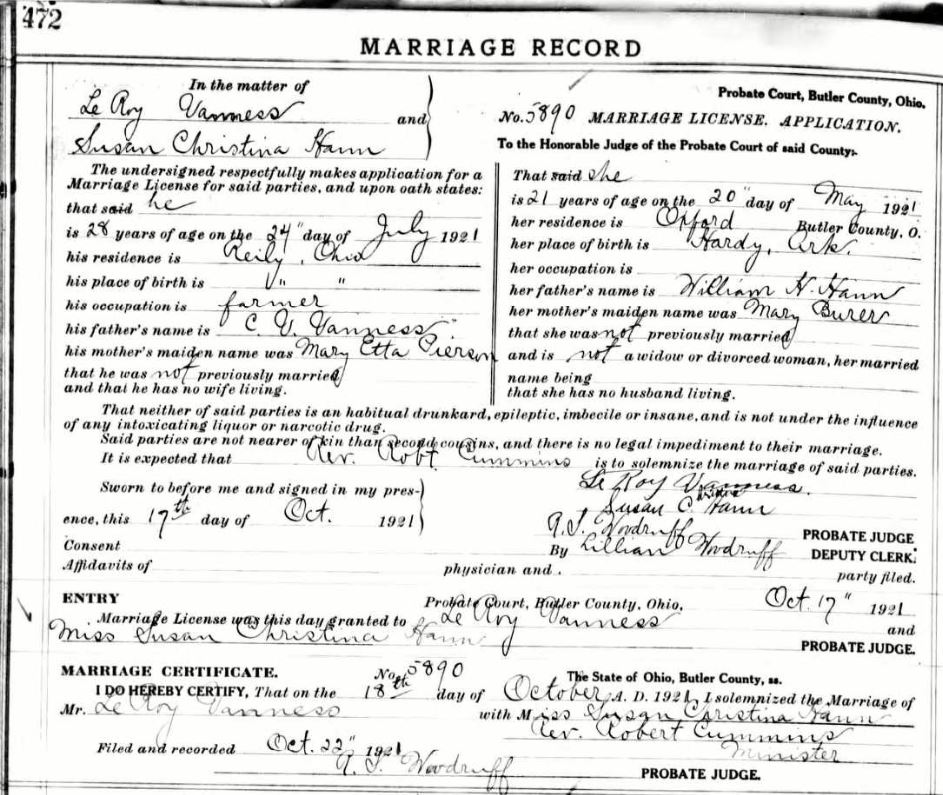 472
MARRIAGE RECORD
In the matter of
Le Roy Vanness and
Susan Christina Hann
The undersigned respectfully makes application for a
Marriage License for said parties, and upon oath states:
that said he
is 28 years of age on the 24" day of July 1921
his residence is Reily, Ohio
his place of birth is " "
his occupation is farmer
his father's name is C. V. Vanness
his mother's maiden name was Mary Etta Pierson
that he was not previously married
and that he has no wife living.
Probate Court, Butler County, Ohio.
No. 5890 MARRIAGE LICENSE. APPLICATION.
To the Honorable Judge of the Probate Court of said County:-
That said she
is 21 years of age on the 20" day of May 1921
her residence is Oxford Butler County, O.
her place of birth is Hardy, Ark.
her occupation is
her father's name is William H. Hann
her mother's maiden name was Mary Burer
that she was not previously married
and is not a widow or divorced woman, her married
name being
that she has no husband living.
That neither of said parties is an habitual drunkard, epileptic, imbecile or insane, and is not under the influence
of any intoxicating liquor or narcotic drug.
Said parties are not nearer of kin than second cousins, and there is no legal impediment to their marriage.
It is expected that Rev. Robt Cummins is to solemnize the marriage of said parties.
Le Roy Vanness.
Sworn to before me and signed in my pres-
Susan C. Hann
ence, this 17th day of Oct. 1921
R. S. Woodruff PROBATE JUDGE
Consent By Lillian Woodruff DEPUTY CLERK.
Affidavits of physician and . party filed.
ENTRY Probate Court, Butler County, Ohio, Oct. 17" 1921
Marriage License was this day granted to Le Roy Vanness and
Miss Susan Christina Hann PROBATE JUDGE.
MARRIAGE CERTIFICATE. No. 5890 The State of Ohio, Butler County, ss.
I DO HEREBY CERTIFY, That on the 18th day of October A. D. 1921, I solemnized the Marriage of
Mr. Le Roy Vanness with Miss Susan Christina Hann
Rev. Robert Cummins
Minister
Filed and recorded Oct. 22" 1921
R. S. Woodruff PROBATE JUDGE.